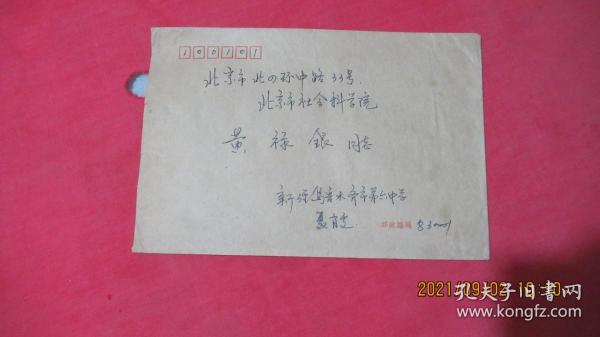 100101
北京市北四环中路33号
北京市社会科学院
黄禄银同志
新疆乌鲁木齐市第六中学
邮政编码
2021/09/02
孔夫子旧书网